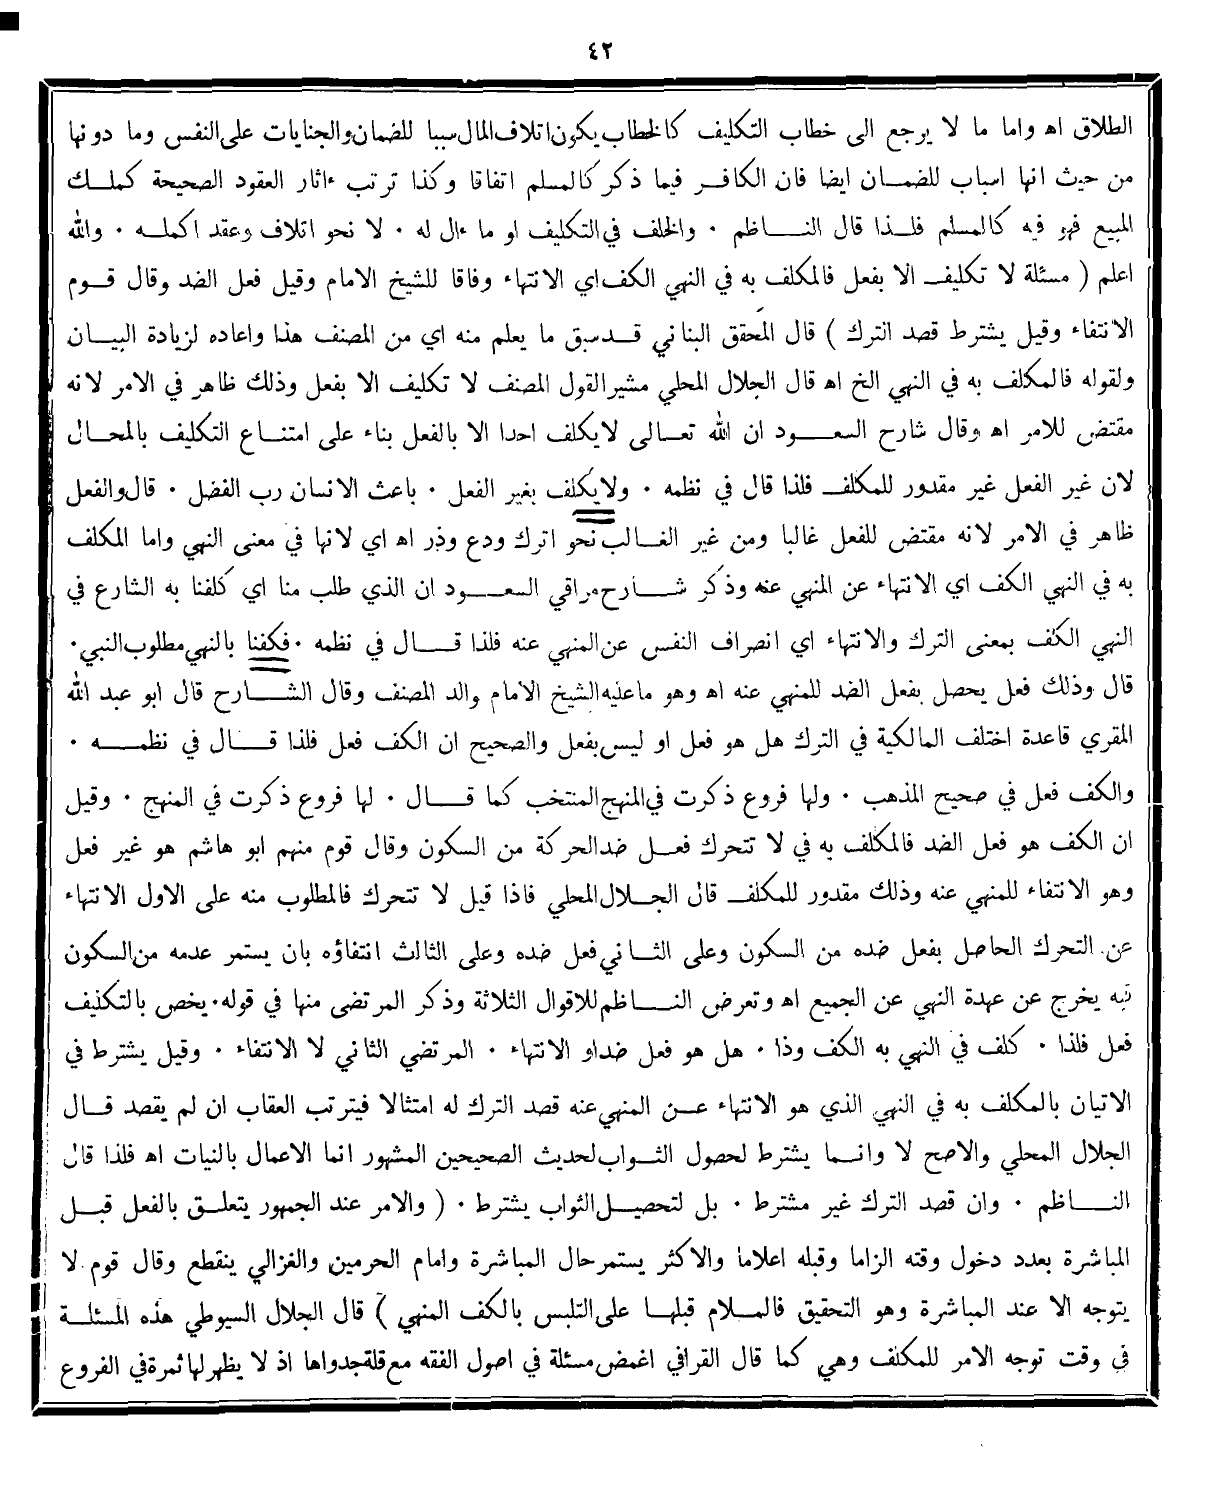 ٤٢
الطلاق اه واما ما لا يرجع الى خطاب التكليف كالخطاب يكون اتلاف المال سببا للضمان والجنايات على النفس وما دونها
من حيث انها اسباب للضمان ايضا فان الكافر فيما ذكر كالمسلم اتفاقا وكذا ترتب ءاثار العقود الصحيحة كملك
المبيع فهو فيه كالمسلم فلذا قال الناظم · والخلف في التكليف او ما ءال له · لا نحو اتلاف وعقد اكمله · والله
اعلم ( مسئلة لا تكليف الا بفعل فالمكلف به في النهي الكف اي الانتهاء وفاقا للشيخ الامام وقيل فعل الضد وقال قوم
الانتفاء وقيل يشترط قصد الترك ) قال المحقق البناني قد سبق ما يعلم منه اي من المصنف هذا واعاده لزيادة البيان
ولقوله فالمكلف به في النهي الخ اه قال الجلال المحلي مشير القول المصنف لا تكليف الا بفعل وذلك ظاهر في الامر لانه
مقتض للامر اه وقال شارح السعود ان الله تعالى لا يكلف احدا الا بالفعل بناء على امتناع التكليف بالمحال
لان غير الفعل غير مقدور للمكلف فلذا قال في نظمه · ولا يكلف بغير الفعل · باعث الانسان رب الفضل · قال والفعل
ظاهر في الامر لانه مقتض للفعل غالبا ومن غير الغالب نحو اترك ودع وذر اه اي لانها في معنى النهي واما المكلف
به في النهي الكف اي الانتهاء عن المنهي عنه وذكر شارح مراقي السعود ان الذي طلب منا اي كلفنا به الشارع في
النهي الكف بمعنى الترك والانتهاء اي انصراف النفس عن المنهي عنه فلذا قال في نظمه · فكفنا بالنهي مطلوب النبي ·
قال وذلك فعل يحصل بفعل الضد للمنهي عنه اه وهو ما عليه الشيخ الامام والد المصنف وقال الشارح قال ابو عبد الله
المقري قاعدة اختلف المالكية في الترك هل هو فعل او ليس بفعل والصحيح ان الكف فعل فلذا قال في نظمه ·
والكف فعل في صحيح المذهب · ولها فروع ذكرت في المنهج المنتخب كما قال · لها فروع ذكرت في المنهج · وقيل
ان الكف هو فعل الضد فالمكلف به في لا تتحرك فعل ضد الحركة من السكون وقال قوم منهم ابو هاشم هو غير فعل
وهو الانتفاء للمنهي عنه وذلك مقدور للمكلف قال الجلال المحلي فاذا قيل لا تتحرك فالمطلوب منه على الاول الانتهاء
عن التحرك الحاصل بفعل ضده من السكون وعلى الثاني فعل ضده وعلى الثالث انتفاؤه بان يستمر عدمه من السكون
فبه يخرج عن عهدة النهي عن الجميع اه وتعرض الناظم للاقوال الثلاثة وذكر المرتضى منها في قوله · يخص بالتكليف
فعل فلذا · كلف في النهي به الكف وذا · هل هو فعل ضد او الانتهاء · المرتضي الثاني لا الانتفاء · وقيل يشترط في
الاتيان بالمكلف به في النهي الذي هو الانتهاء عن المنهي عنه قصد الترك له امتثالا فيترتب العقاب ان لم يقصد قال
الجلال المحلي والاصح لا وانما يشترط لحصول الثواب لحديث الصحيحين المشهور انما الاعمال بالنيات اه فلذا قال
الناظم · وان قصد الترك غير مشترط · بل لتحصيل الثواب يشترط · ( والامر عند الجمهور يتعلق بالفعل قبل
المباشرة بعدد دخول وقته الزاما وقبله اعلاما والاكثر يستمر حال المباشرة وامام الحرمين والغزالي ينقطع وقال قوم لا
يتوجه الا عند المباشرة وهو التحقيق فالملام قبلها على التلبس بالكف المنهي ) قال الجلال السيوطي هذه المسئلة
في وقت توجه الامر للمكلف وهي كما قال القرافي اغمض مسئلة في اصول الفقه مع قلة جدواها اذ لا يظهر لها ثمرة في الفروع